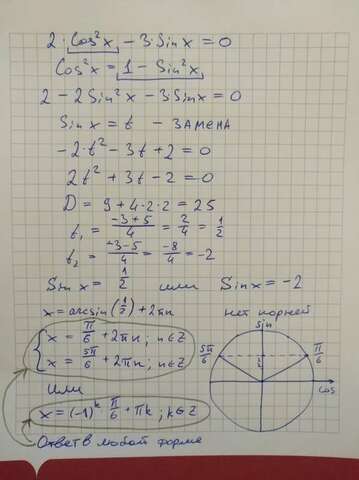 2·cos²x − 3·Sinx = 0
Cos²x = 1 − Sin²x
2 − 2Sin²x − 3·Sinx = 0
Sinx = t - ЗАМЕНА
-2·t² − 3t + 2 = 0
2t² + 3t − 2 = 0
D = 9 + 4·2·2 = 25
t₁ = (-3+5)/4 = 2/4 = 1/2
t₂ = (-3-5)/4 = -8/4 = -2
Sinx = 1/2 или Sinx = -2
x = arcsin(1/2) + 2πn нет корней
x = π/6 + 2πn; n∈Z
x = 5π/6 + 2πn; n∈Z
Sin
5π/6 1/2 π/6
Cos
или
x = (-1)ᵏ π/6 + πk; k∈Z
Ответ в любой форме